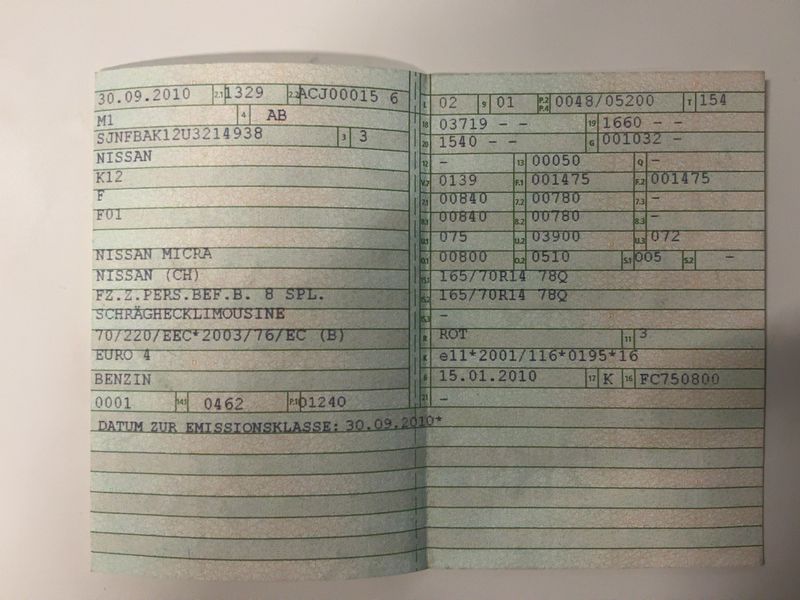 30.09.2010 2.1 1329 2.2 ACJ00015 6
M1 4 AB
SJNFBAK12U3214938 3 3
NISSAN
K12
F
F01
NISSAN MICRA
NISSAN (CH)
FZ.Z.PERS.BEF.B. 8 SPL.
SCHRÄGHECKLIMOUSINE
70/220/EEC*2003/76/EC (B)
EURO 4
BENZIN
0001 14.1 0462 P.1 01240
DATUM ZUR EMISSIONSKLASSE: 30.09.2010*
L 02 9 01 P.2 P.4 0048/05200 T 154
18 03719 - - 19 1660 - -
20 1540 - - G 001032 -
12 - 13 00050 Q -
V.7 0139 F.1 001475 F.2 001475
7.1 00840 7.2 00780 7.3 -
8.1 00840 8.2 00780 8.3 -
U.1 075 U.2 03900 U.3 072
O.1 00800 O.2 0510 S.1 005 S.2 -
15.1 165/70R14 78Q
15.2 165/70R14 78Q
15.3 -
R ROT 11 3
K e11*2001/116*0195*16
6 15.01.2010 17 K 16 FC750800
21 -